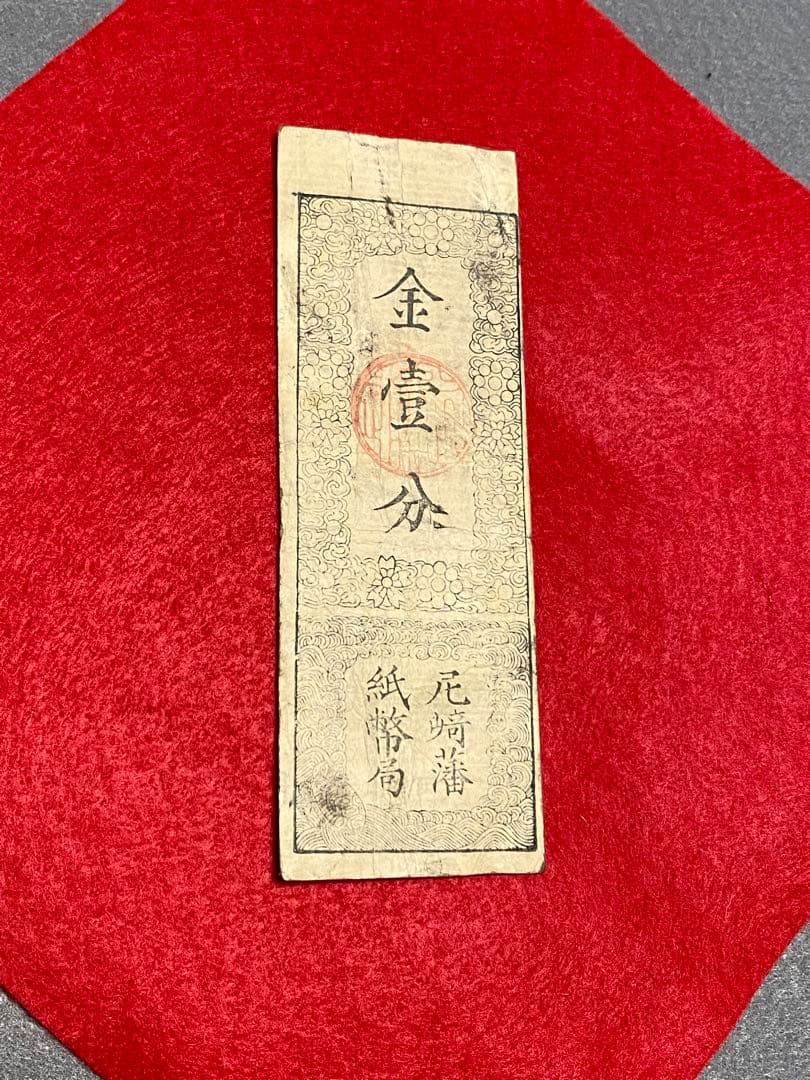 金壹分
尼崎藩
紙幣局